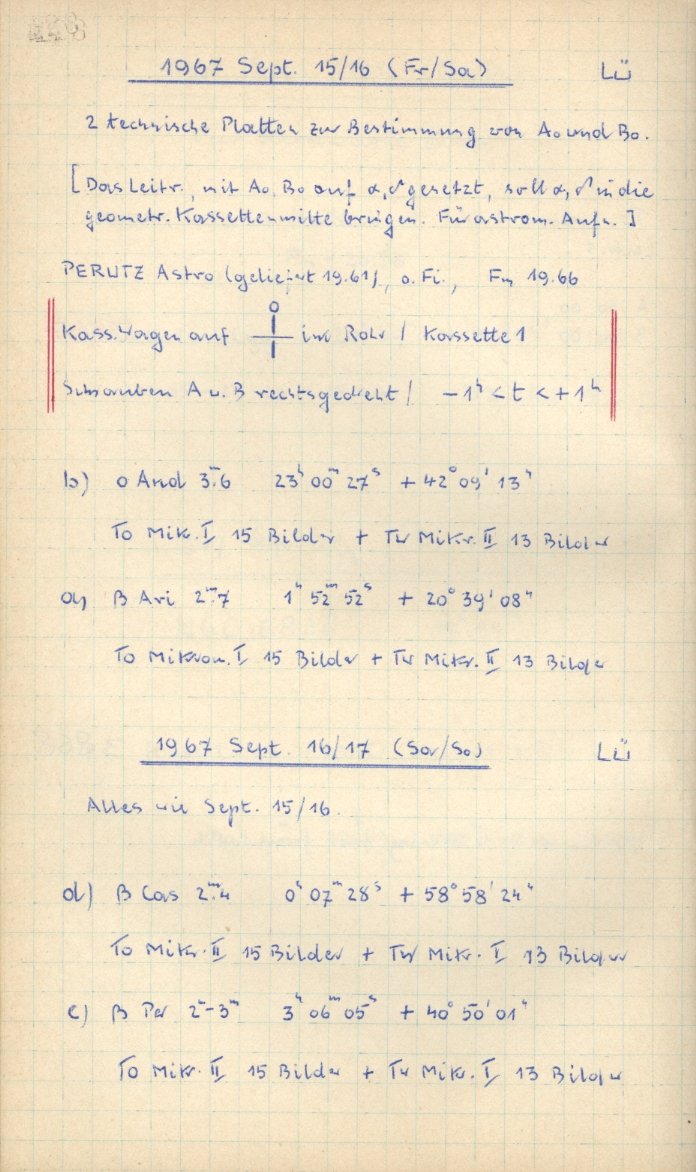 1967 Sept. 15/16 (Fr/Sa) Lü
2 technische Platten zur Bestimmung von Ao und Bo.
[Das Leitr., mit Ao, Bo auf α, δ gesetzt, soll α, δ in die
geometr. Kassettenmitte bringen. Für astrom. Aufn.]
PERUTZ Astro (geliefert 19.61), o. Fi., Em 19.66
Kass.Wagen auf im Rohr / Kassette 1
Schrauben A u. B rechtsgedreht / -1ʰ < t < +1ʰ
b) o And 3ᵐ.6 23ʰ 00ᵐ 27ˢ + 42° 09' 13"
To Mik. I 15 Bilder + Tw Mikr. II 13 Bilder
a) β Ari 2ᵐ.7 1ʰ 52ᵐ 52ˢ + 20° 39' 08"
To Mikrom. I 15 Bilder + Tw Mikr. II 13 Bilder
1967 Sept. 16/17 (Sa/So) Lü
Alles wie Sept. 15/16.
d) β Cas 2ᵐ.4 0ʰ 07ᵐ 28ˢ + 58° 58' 24"
To Mikr. II 15 Bilder + Tw Mikr. I 13 Bilder
c) β Per 2ᵐ-3ᵐ 3ʰ 06ᵐ 05ˢ + 40° 50' 01"
To Mikr. II 15 Bilder + Tw Mikr. I 13 Bilder